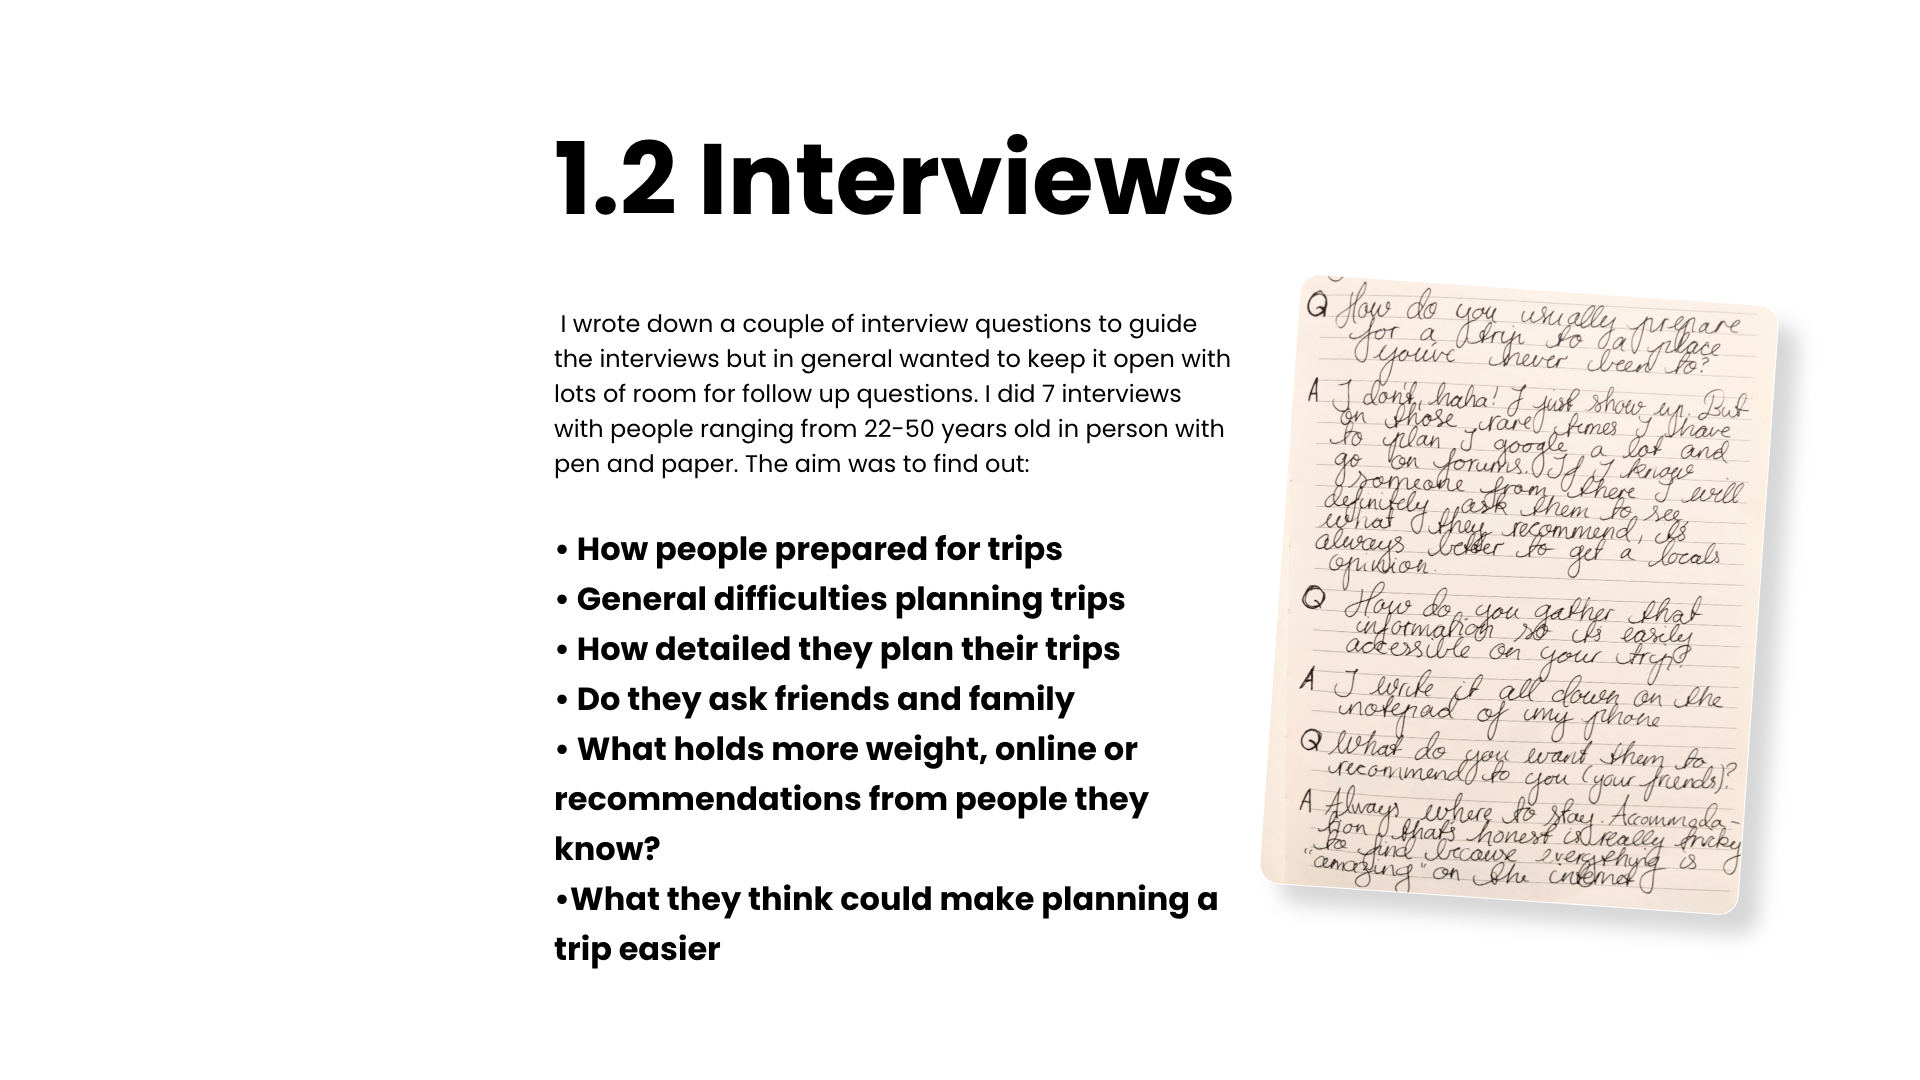 1.2 Interviews
I wrote down a couple of interview questions to guide
the interviews but in general wanted to keep it open with
lots of room for follow up questions. I did 7 interviews
with people ranging from 22-50 years old in person with
pen and paper. The aim was to find out:
• How people prepared for trips
• General difficulties planning trips
• How detailed they plan their trips
• Do they ask friends and family
• What holds more weight, online or
recommendations from people they
know?
•What they think could make planning a
trip easier
Q How do you usually prepare
for a trip to a place
you've never been to?
A I don't, haha! I just show up. But
on those rare times I have
to plan I google a lot and
go on forums. If I know
someone from there I will
definitely ask them to see
what they recommend, its
always better to get a locals
opinion.
Q How do you gather that
information so its easily
accessible on your trip?
A I write it all down on the
notepad of my phone
Q What do you want them to
recommend to you (your friends)?
A Always where to stay. Accommoda-
tion thats honest is really tricky
to find because everything is
"amazing" on the internet